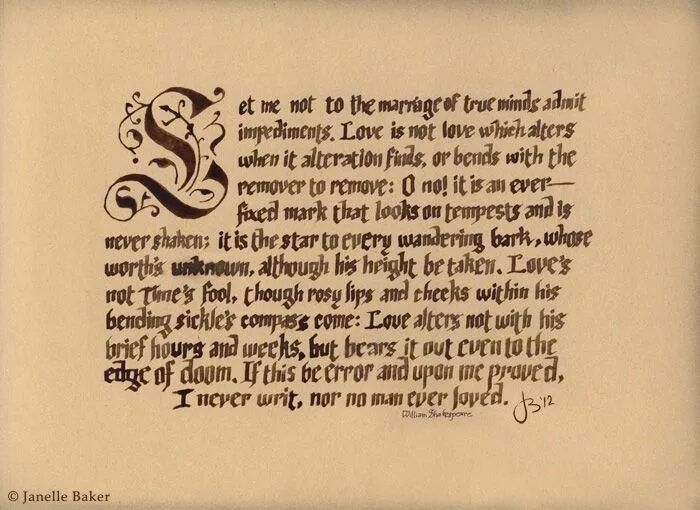 Let me not to the marriage of true minds admit
impediments. Love is not love which alters
when it alteration finds, or bends with the
remover to remove: O no! it is an ever—
fixed mark that looks on tempests and is
never shaken; it is the star to every wandering bark, whose
worth's unknown, although his height be taken. Love's
not Time's fool, though rosy lips and cheeks within his
bending sickle's compass come: Love alters not with his
brief hours and weeks, but bears it out even to the
edge of doom. If this be error and upon me proved,
I never writ, nor no man ever loved.
JB '12
William Shakespeare
© Janelle Baker